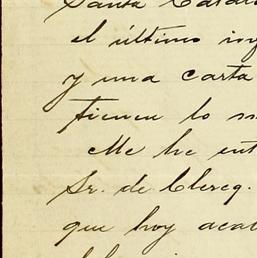 Santa Catali
el último
y una carta
tienen lo
Me he ent
Sr. de Clercq.
que hoy acab